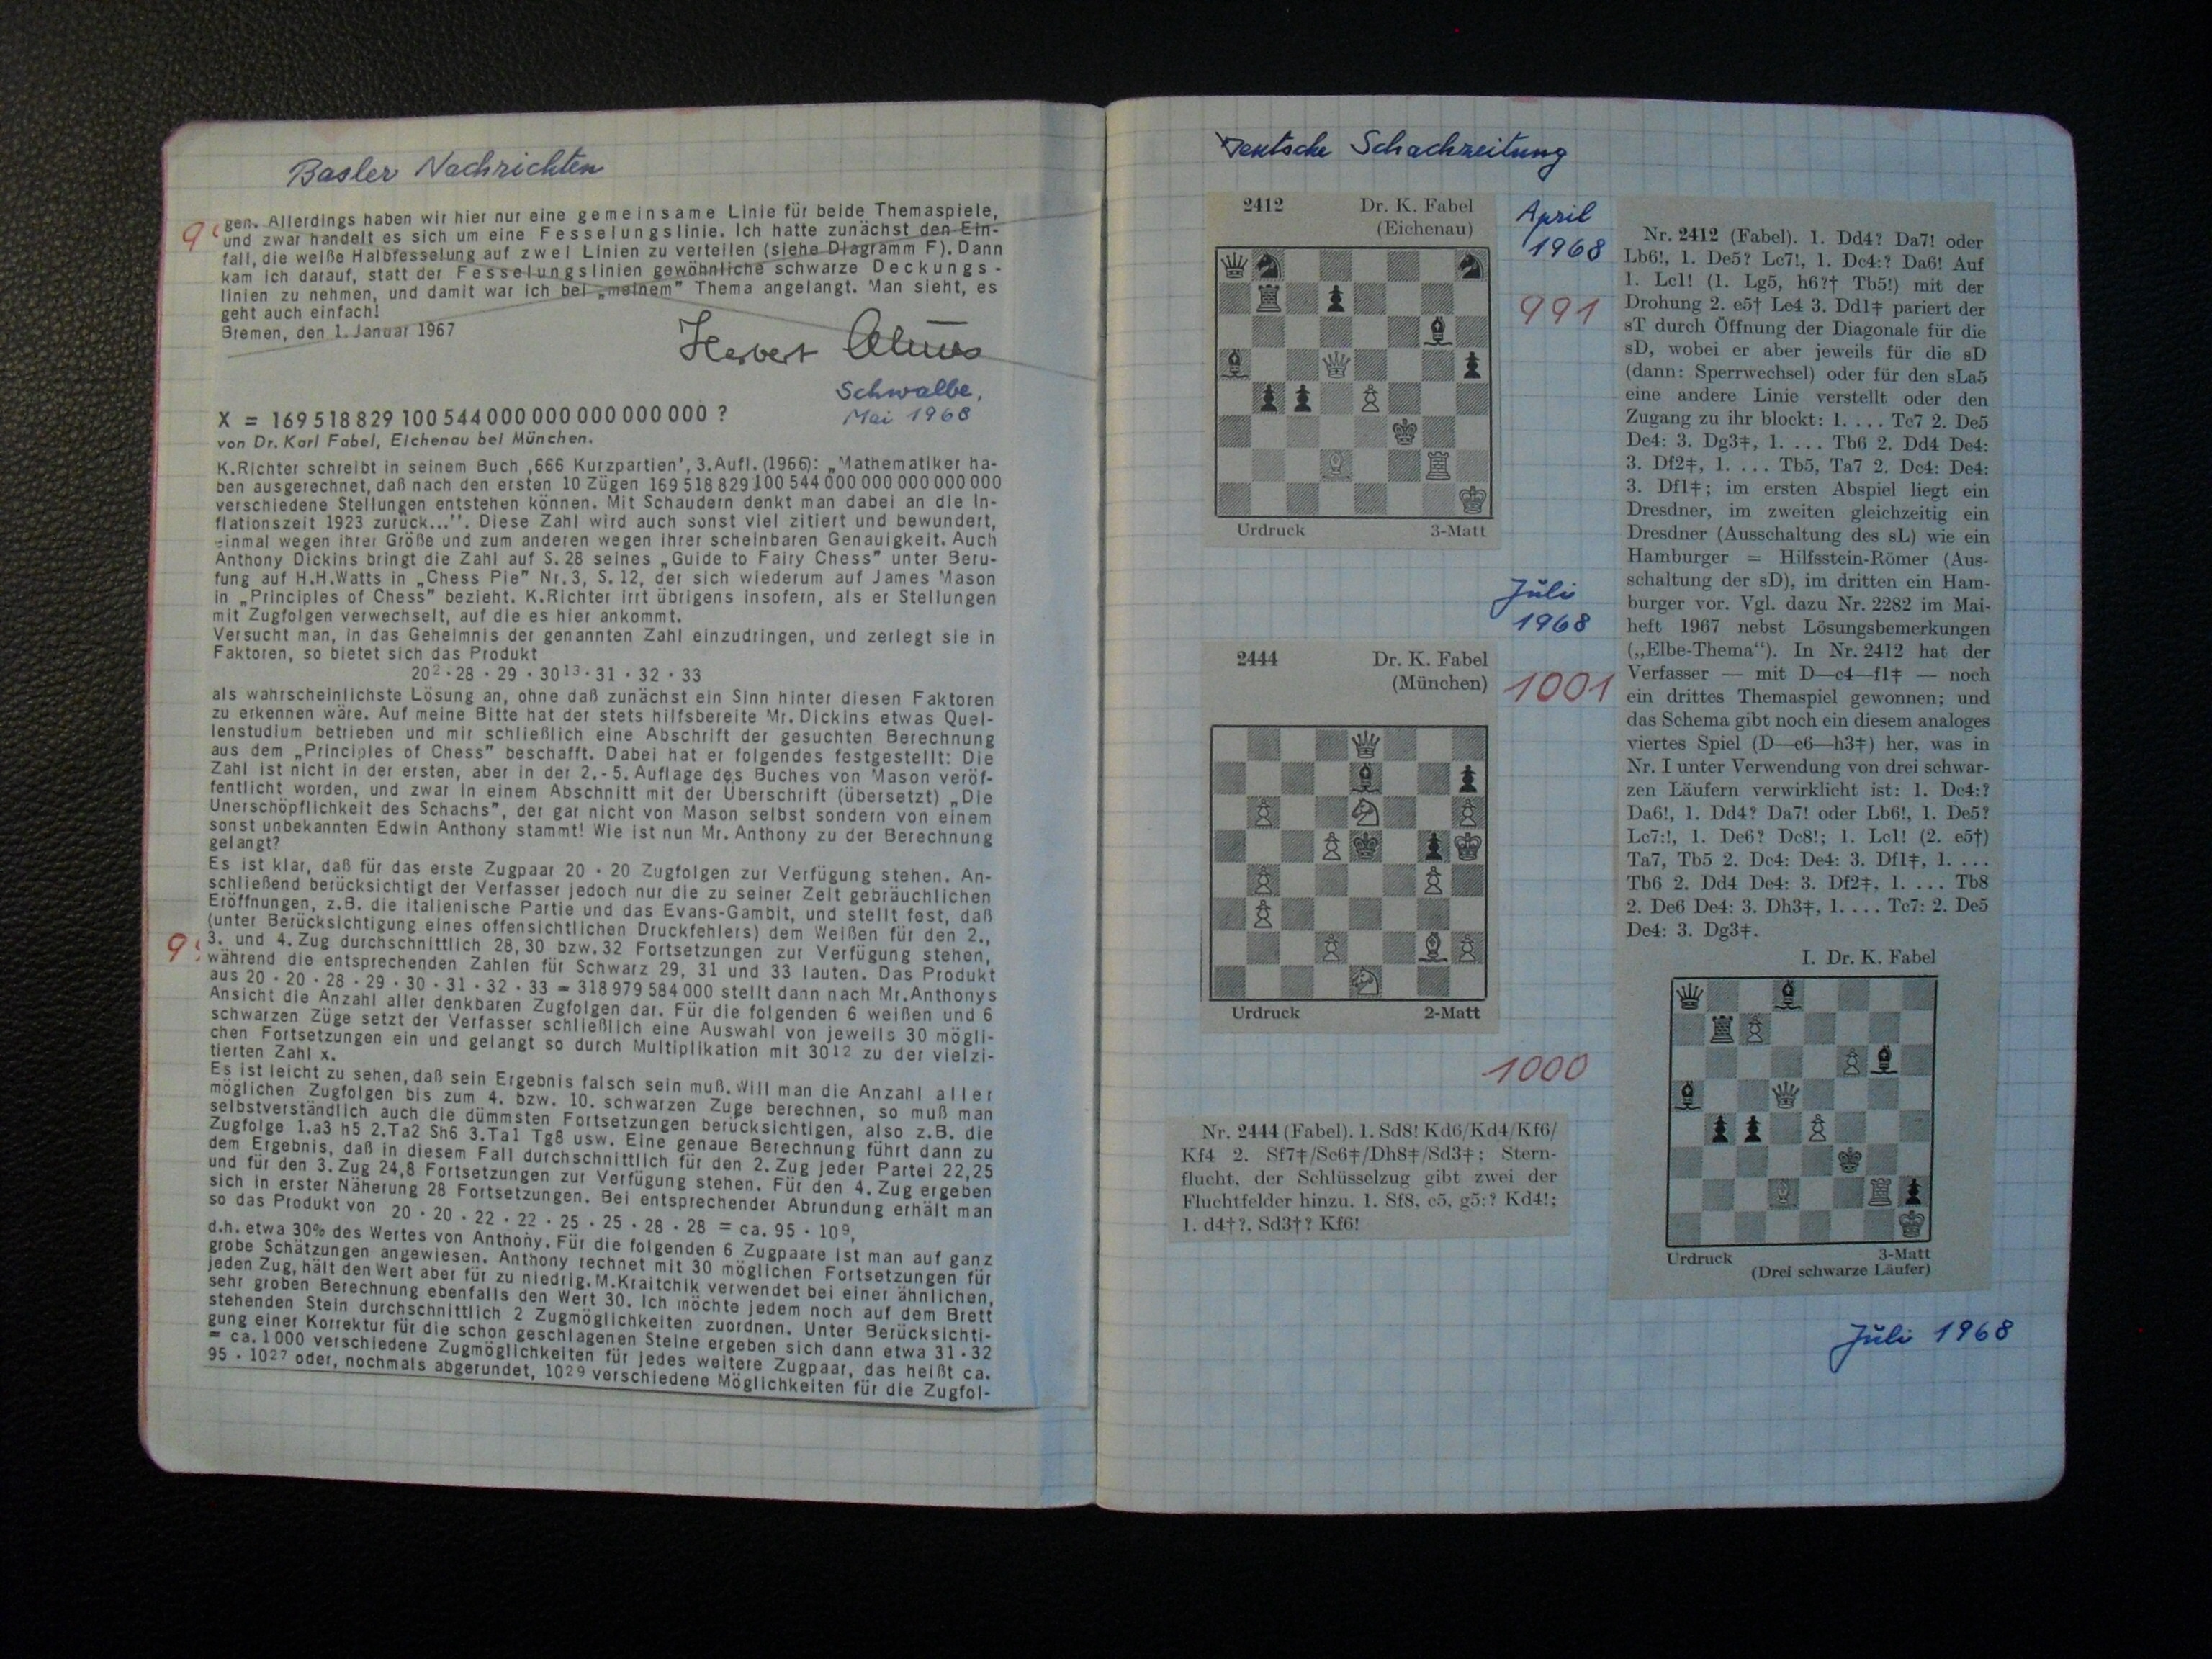 Basler Nachrichten
gen. Allerdings haben wir hier nur eine gemeinsame Linie für beide Themaspiele,
und zwar handelt es sich um eine Fesselungslinie. Ich hatte zunächst den Ein-
fall, die weiße Halbfesselung auf zwei Linien zu verteilen (siehe Diagramm F). Dann
kam ich darauf, statt der Fesselungslinien gewöhnliche schwarze Deckungs-
linien zu nehmen, und damit war ich bei „meinem” Thema angelangt. Man sieht, es
geht auch einfach!
Bremen, den 1. Januar 1967
Herbert Ahues
Schwalbe,
Mai 1968
X = 169 518 829 100 544 000 000 000 000 000 ?
von Dr. Karl Fabel, Eichenau bei München.
K.Richter schreibt in seinem Buch ‚666 Kurzpartien’, 3.Aufl. (1966): „Mathematiker ha-
ben ausgerechnet, daß nach den ersten 10 Zügen 169 518 829 100 544 000 000 000 000 000
verschiedene Stellungen entstehen können. Mit Schaudern denkt man dabei an die In-
flationszeit 1923 zurück...’’. Diese Zahl wird auch sonst viel zitiert und bewundert,
einmal wegen ihrer Größe und zum anderen wegen ihrer scheinbaren Genauigkeit. Auch
Anthony Dickins bringt die Zahl auf S. 28 seines „Guide to Fairy Chess” unter Beru-
fung auf H.H.Watts in „Chess Pie” Nr.3, S. 12, der sich wiederum auf James Mason
in „Principles of Chess” bezieht. K.Richter irrt übrigens insofern, als er Stellungen
mit Zugfolgen verwechselt, auf die es hier ankommt.
Versucht man, in das Geheimnis der genannten Zahl einzudringen, und zerlegt sie in
Faktoren, so bietet sich das Produkt
20² · 28 · 29 · 30¹³ · 31 · 32 · 33
als wahrscheinlichste Lösung an, ohne daß zunächst ein Sinn hinter diesen Faktoren
zu erkennen wäre. Auf meine Bitte hat der stets hilfsbereite Mr. Dickins etwas Quel-
lenstudium betrieben und mir schließlich eine Abschrift der gesuchten Berechnung
aus dem „Principles of Chess” beschafft. Dabei hat er folgendes festgestellt: Die
Zahl ist nicht in der ersten, aber in der 2.-5. Auflage des Buches von Mason veröf-
fentlicht worden, und zwar in einem Abschnitt mit der Überschrift (übersetzt) „Die
Unerschöpflichkeit des Schachs”, der gar nicht von Mason selbst sondern von einem
sonst unbekannten Edwin Anthony stammt! Wie ist nun Mr. Anthony zu der Berechnung
gelangt?
Es ist klar, daß für das erste Zugpaar 20 · 20 Zugfolgen zur Verfügung stehen. An-
schließend berücksichtigt der Verfasser jedoch nur die zu seiner Zeit gebräuchlichen
Eröffnungen, z.B. die italienische Partie und das Evans-Gambit, und stellt fest, daß
(unter Berücksichtigung eines offensichtlichen Druckfehlers) dem Weißen für den 2.,
3. und 4. Zug durchschnittlich 28, 30 bzw. 32 Fortsetzungen zur Verfügung stehen,
während die entsprechenden Zahlen für Schwarz 29, 31 und 33 lauten. Das Produkt
aus 20 · 20 · 28 · 29 · 30 · 31 · 32 · 33 = 318 979 584 000 stellt dann nach Mr.Anthonys
Ansicht die Anzahl aller denkbaren Zugfolgen dar. Für die folgenden 6 weißen und 6
schwarzen Züge setzt der Verfasser schließlich eine Auswahl von jeweils 30 mögli-
chen Fortsetzungen ein und gelangt so durch Multiplikation mit 30¹² zu der vielzi-
tierten Zahl x.
Es ist leicht zu sehen, daß sein Ergebnis falsch sein muß. Will man die Anzahl aller
möglichen Zugfolgen bis zum 4. bzw. 10. schwarzen Zuge berechnen, so muß man
selbstverständlich auch die dümmsten Fortsetzungen berücksichtigen, also z.B. die
Zugfolge 1.a3 h5 2.Ta2 Sh6 3.Ta1 Tg8 usw. Eine genaue Berechnung führt dann zu
dem Ergebnis, daß in diesem Fall durchschnittlich für den 2. Zug jeder Partei 22,25
und für den 3. Zug 24,8 Fortsetzungen zur Verfügung stehen. Für den 4. Zug ergeben
sich in erster Näherung 28 Fortsetzungen. Bei entsprechender Abrundung erhält man
so das Produkt von 20 · 20 · 22 · 22 · 25 · 25 · 28 · 28 = ca. 95 · 10⁹,
d.h. etwa 30% des Wertes von Anthony. Für die folgenden 6 Zugpaare ist man auf ganz
grobe Schätzungen angewiesen. Anthony rechnet mit 30 möglichen Fortsetzungen für
jeden Zug, hält den Wert aber für zu niedrig. M.Kraitchik verwendet bei einer ähnlichen,
sehr groben Berechnung ebenfalls den Wert 30. Ich möchte jedem noch auf dem Brett
stehenden Stein durchschnittlich 2 Zugmöglichkeiten zuordnen. Unter Berücksichti-
gung einer Korrektur für die schon geschlagenen Steine ergeben sich dann etwa 31 · 32
= ca. 1000 verschiedene Zugmöglichkeiten für jedes weitere Zugpaar, das heißt ca.
95 · 10²⁷ oder, nochmals abgerundet, 10²⁹ verschiedene Möglichkeiten für die Zugfol-
Deutsche Schachzeitung
2412 Dr. K. Fabel
(Eichenau)
Urdruck 3-Matt
April
1968
991
Juli
1968
2444 Dr. K. Fabel
(München)
1001
Urdruck 2-Matt
1000
Nr. 2444 (Fabel). 1. Sd8! Kd6/Kd4/Kf6/
Kf4 2. Sf7‡/Sc6‡/Dh8‡/Sd3‡; Stern-
flucht, der Schlüsselzug gibt zwei der
Fluchtfelder hinzu. 1. Sf8, c5, g5:? Kd4!;
1. d4†?, Sd3†? Kf6!
Nr. 2412 (Fabel). 1. Dd4? Da7! oder
Lb6!, 1. De5? Lc7!, 1. Dc4:? Da6! Auf
1. Lc1! (1. Lg5, h6?† Tb5!) mit der
Drohung 2. e5† Le4 3. Dd1‡ pariert der
sT durch Öffnung der Diagonale für die
sD, wobei er aber jeweils für die sD
(dann: Sperrwechsel) oder für den sLa5
eine andere Linie verstellt oder den
Zugang zu ihr blockt: 1. . . . Tc7 2. De5
De4: 3. Dg3‡, 1. . . . Tb6 2. Dd4 De4:
3. Df2‡, 1. . . . Tb5, Ta7 2. Dc4: De4:
3. Df1‡; im ersten Abspiel liegt ein
Dresdner, im zweiten gleichzeitig ein
Dresdner (Ausschaltung des sL) wie ein
Hamburger = Hilfsstein-Römer (Aus-
schaltung der sD), im dritten ein Ham-
burger vor. Vgl. dazu Nr. 2282 im Mai-
heft 1967 nebst Lösungsbemerkungen
(„Elbe-Thema“). In Nr. 2412 hat der
Verfasser — mit D—c4—f1‡ — noch
ein drittes Themaspiel gewonnen; und
das Schema gibt noch ein diesem analoges
viertes Spiel (D—e6—h3‡) her, was in
Nr. I unter Verwendung von drei schwar-
zen Läufern verwirklicht ist: 1. Dc4:?
Da6!, 1. Dd4? Da7! oder Lb6!, 1. De5?
Lc7:!, 1. De6? Dc8!; 1. Lc1! (2. e5†)
Ta7, Tb5 2. Dc4: De4: 3. Df1‡, 1. . . .
Tb6 2. Dd4 De4: 3. Df2‡, 1. . . . Tb8
2. De6 De4: 3. Dh3‡, 1. . . . Tc7: 2. De5
De4: 3. Dg3‡.
I. Dr. K. Fabel
Urdruck 3-Matt
(Drei schwarze Läufer)
Juli 1968